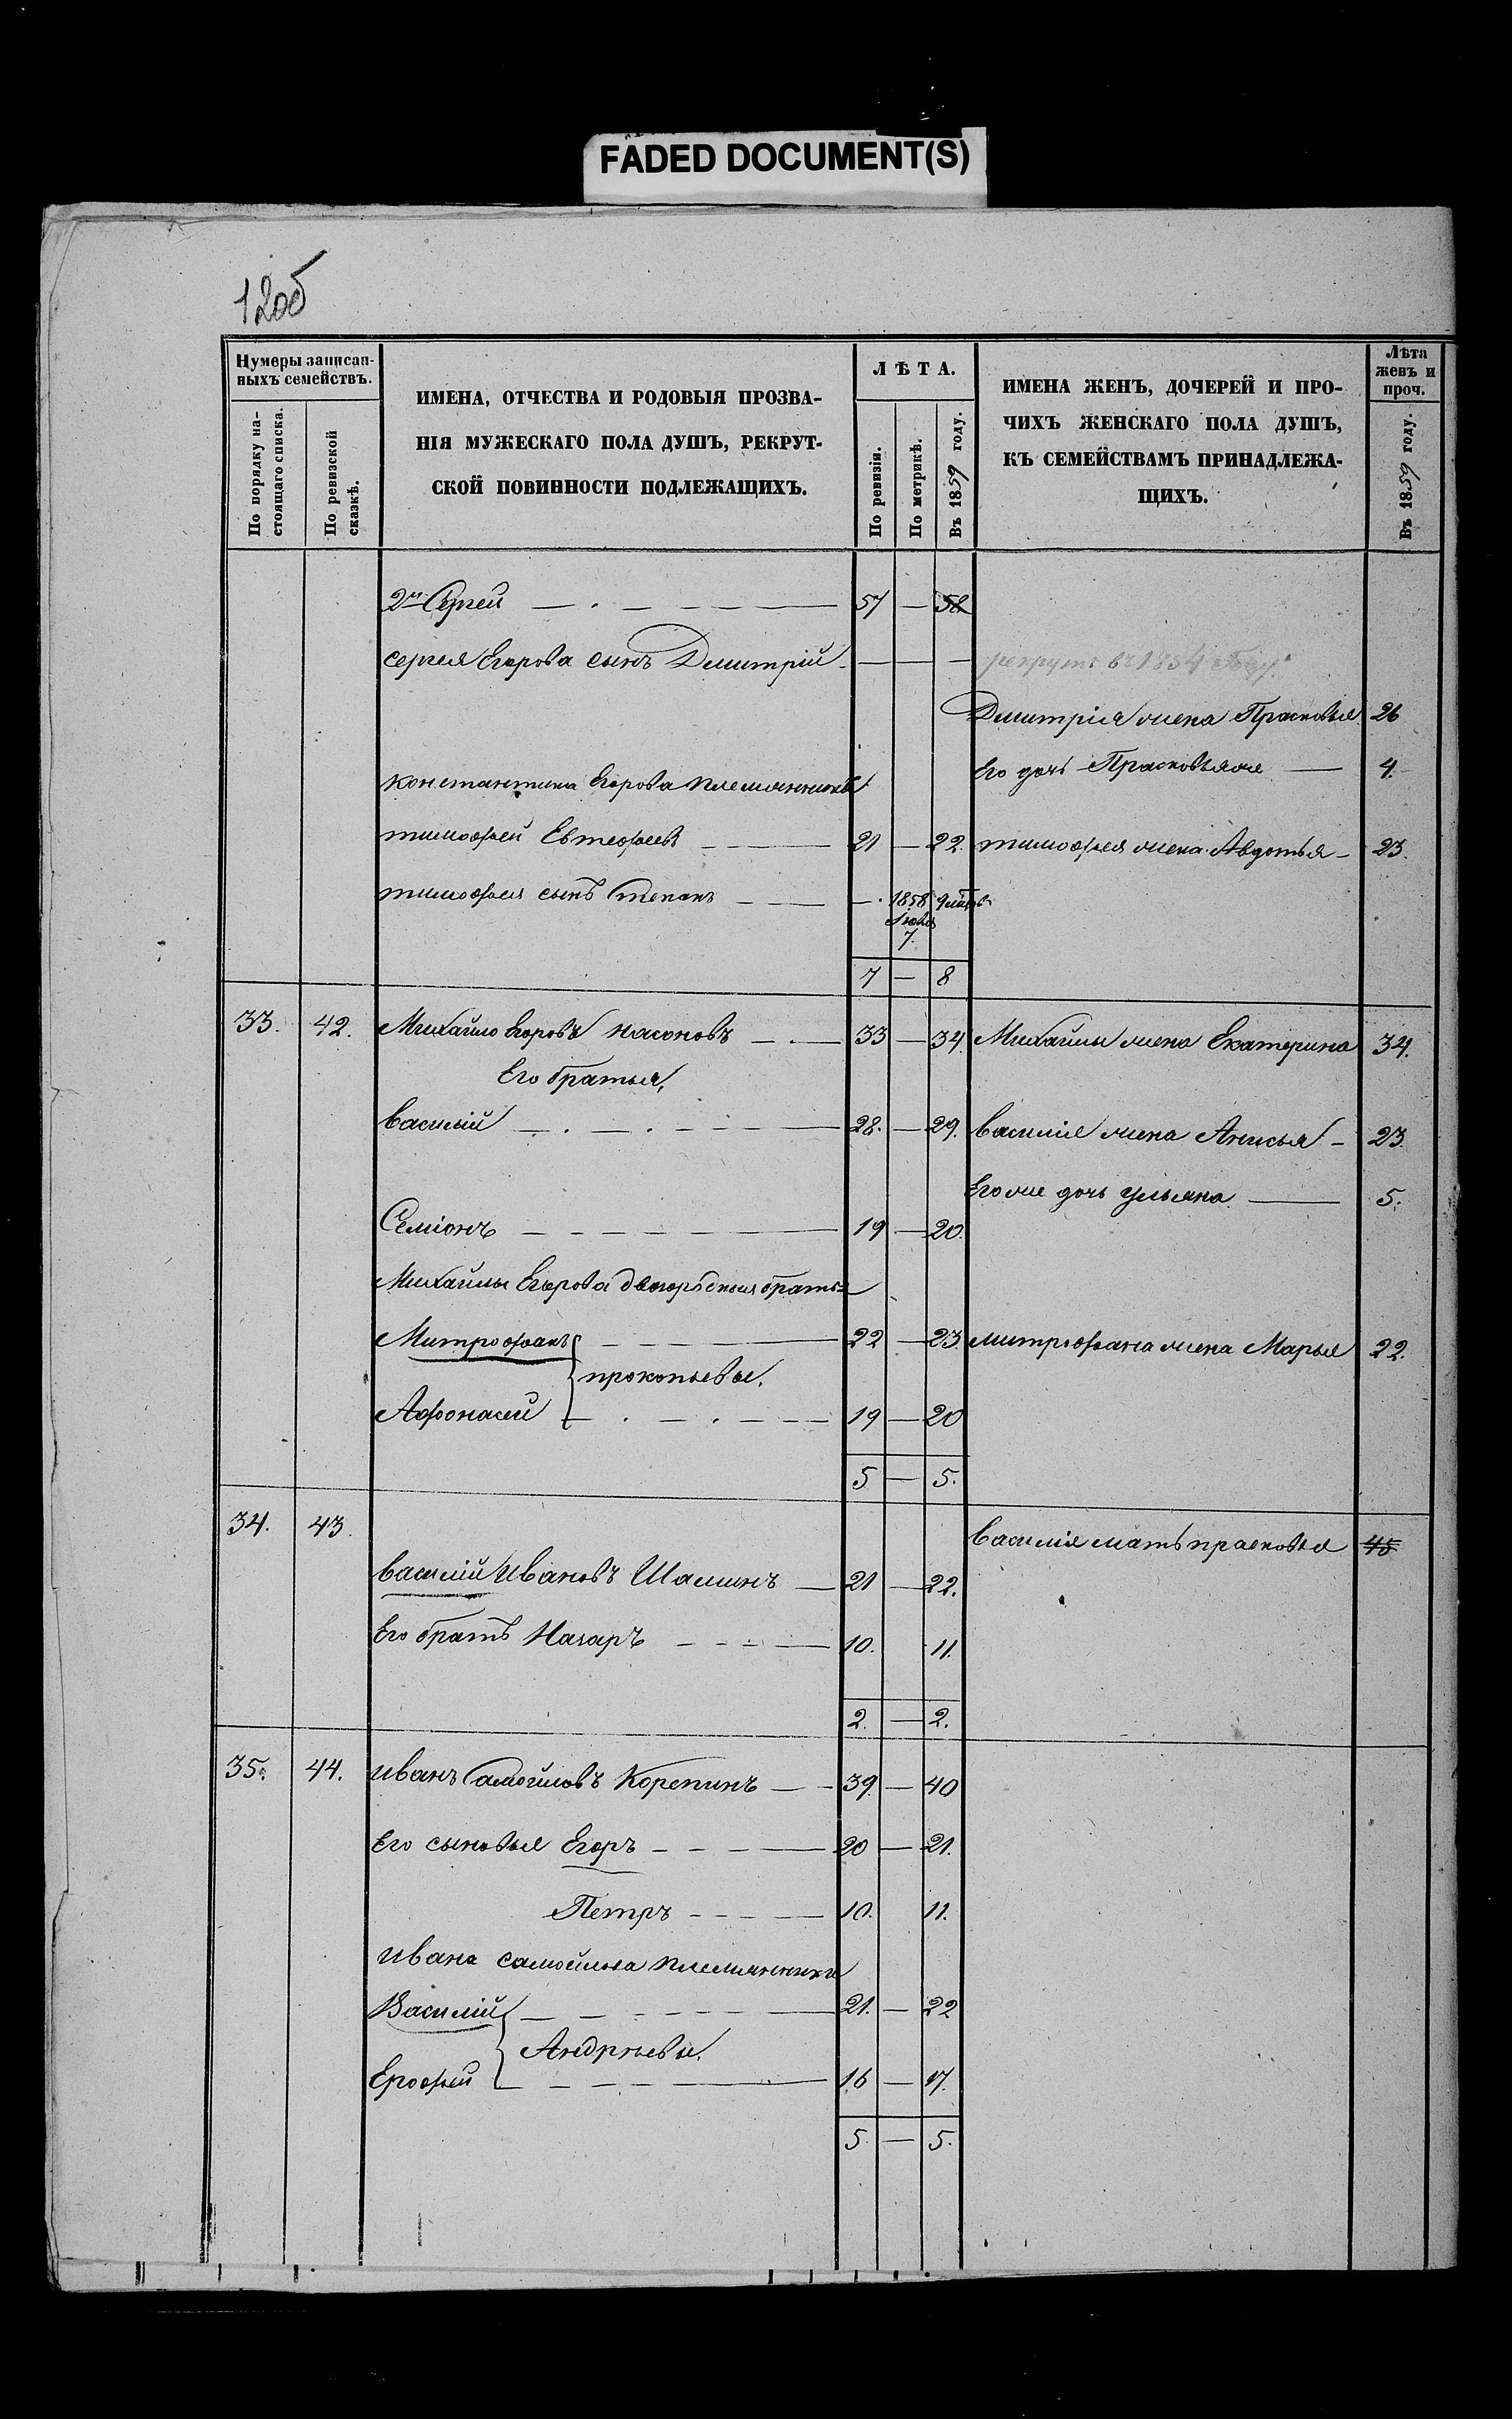 FADED DOCUMENT(S)
120б
Нумеры записан-
ныхъ семействъ.
По порядку на-
стоящаго списка.
По ревизской
сказкѣ.
ИМЕНА, ОТЧЕСТВА И РОДОВЫЯ ПРОЗВА-
НІЯ МУЖЕСКАГО ПОЛА ДУШЪ, РЕКРУТ-
СКОЙ ПОВИННОСТИ ПОДЛЕЖАЩИХЪ.
ЛѢТА.
По ревизіи.
По метрикѣ.
Въ 1859 году.
ИМЕНА ЖЕНЪ, ДОЧЕРЕЙ И ПРО-
ЧИХЪ ЖЕНСКАГО ПОЛА ДУШЪ,
КЪ СЕМЕЙСТВАМЪ ПРИНАДЛЕЖА-
ЩИХЪ.
Лѣта
женъ и
проч.
Въ 1859 году.
2й Сергей 57 — 58
сергея Егорова сынъ Дмитрій — — — рекрутъ въ 1854 году
Дмитрія жена Прасковья 26
Его дочь Прасковьяже — 4.
константина Егорова племянникъ
тимофей Евтефеевъ 21 — 22. тимофея жена Авдотья — 23.
тимофея сынъ Степанъ —
1858
7.
7 — 8
33. 42. Михайло Егоровъ насоновъ 33 — 34. Михайлы жена Екатерина 34.
Его братья,
василій 28. — 29. василія жена Анисья — 23.
Егоже дочь ульяна — 5.
Семіонъ 19 — 20.
Михайлы Егорова двоюродныя братья
Митрофанъ 22 — 23. митрофана жена Марья 22.
прокопьевы.
Афонасий 19 — 20
5 — 5.
34. 43.
василія мать прасковья 45
василій Ивановъ Шаминъ — 21 — 22.
Его братъ Назаръ 10. 11.
2. — 2.
35. 44. иванъ Самойловъ Корепинъ 39. — 40
Его сыновья Егоръ 20 — 21.
Петръ 10. 11.
ивана самойлова племянники
Василій 21. — 22
Андрѣевы.
Ерофей 16 — 17.
5. — 5.